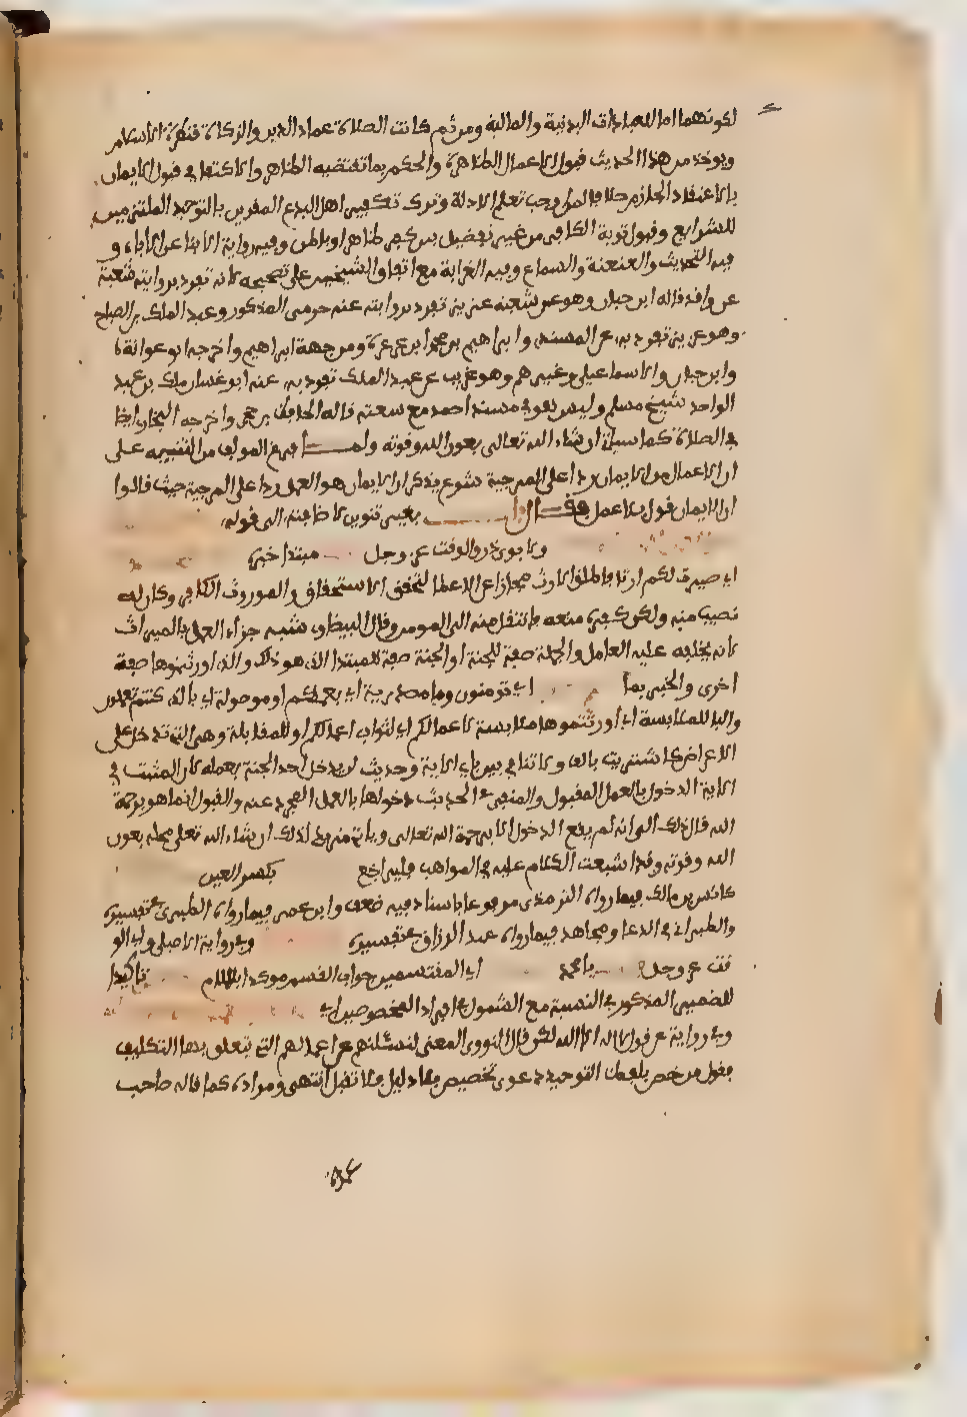 لكونهما اما للعبادات البدنية والمالية ومن ثم كانت الصلاة عماد الدين والزكاة قنطرة الاسلام
ويوخذ من هذا الحديث قبول الاعمال الظاهرة والحكم بما تقتضيه الظاهر والاكتفا في قبول الايمان
بالاعتقاد الجازم خلافا لمن اوجب تعلم الادلة وترك تكفير اهل البدع المقرين بالتوحيد الملتزمين
للشرايع وقبول توبة الكافر من غير تفصيل بين كفر ظاهر او باطن وفيه رواية الابنا عن الاباء و
فيه التحديث والعنعنة والسماع وفيه الغرابة مع اتفاق الشيخين على تصحيحه لانه تفرد بروايته شعبة
عن واقد قاله ابن حبان وهو عن شعبة عزيز تفرد بروايته عنه حرمي المذكور وعبد الملك بن الصباح
وهو عزيز تفرد به عن المسندي وابراهيم بن محمد ابن عرعرة ومن جهة ابراهيم واخرجه ابو عوانة
وابن حبان والاسماعيلي وغيرهم وهو غريب عن عبد الملك تفرد به عنه ابو غسان ملك بن عبد
الواحد شيخ مسلم وليس هو في مسند احمد مع سعته قاله الحافظ بن حجر واخرجه البخاري ايضا
في الصلاة كما سياتي ان شاء الله تعالى بعون الله وقوته ولما فرغ المولف من التنبيه على
ان الاعمال من الايمان ردا على المرجية شرع يذكر ان الايمان هو العمل ردا على المرجية حيث قالوا
ان الايمان قول بلا عمل فقال باب بغير تنوين لاضافته الى قوله
ولابوي ذر والوقت عز وجل مبتدا خبره
اي صيرت لكم ارثا فاطلق الارث مجازا عن الاعطا لتحقق الاستحقاق والموروث الكافر وكان له
نصيب منه ولكن كفره منعه فانتقل منه الى المومن وقال البيضاوي شبه جزاء العمل بالميراث
لانه يخلفه عليه العامل والجملة صفة للجنة او الجنة صفة للمبتدا الذي هو ذلك والتي اورثتموها صفة
اخرى والخبر بما اي تومنون وما مصدرية اي بعملكم او موصولة اي بالذي كنتم تعملون
والبا للملابسة اي اورثتموها ملابسة لاعمالكم اي لثواب اعمالكم او للمقابلة وهي التي تدخل على
الاعواض كاشتريت بالف ولا تنافي بين ما في الاية وحديث لن يدخل احد الجنة بعمله لان المثبت في
الاية الدخول بالعمل المقبول والمنفي في الحديث دخولها بالعمل المجرد عنه والقبول انما هو برحمة
الله فال ذلك الى انه لم يقع الدخول الا برحمة الله تعالى وياتي مزيد لذلك ان شاء الله تعلى بمحله بعون
الله وقوته وقد اشبعت الكلام عليه في المواهب فليراجع بكسر العين
كانس بن مالك فيما رواه الترمذي مرفوعا باسناد فيه ضعف وابن عمر فيما رواه الطبري في تفسيره
والطبراني في الدعا ومجاهد فيما رواه عبد الرزاق في تفسيره وفي رواية الاصيلي ولابي الو
قت عز وجل يا محمد اي المقتسمين جواب القسم موكدا باللام تاكيدا
للضمير المذكور في النسبة مع الشمول في افراد المخصوصين اي
وفي رواية عن قول لا اله الا الله لكن قال النووي المعنى لنسئلنهم عن اعمالهم التي تتعلق بها التكليف
فقول من خص بلفظ التوحيد دعوى تخصيص بلا دليل فلا تقبل انتهى ومراده كما قاله صاحب
عمدة